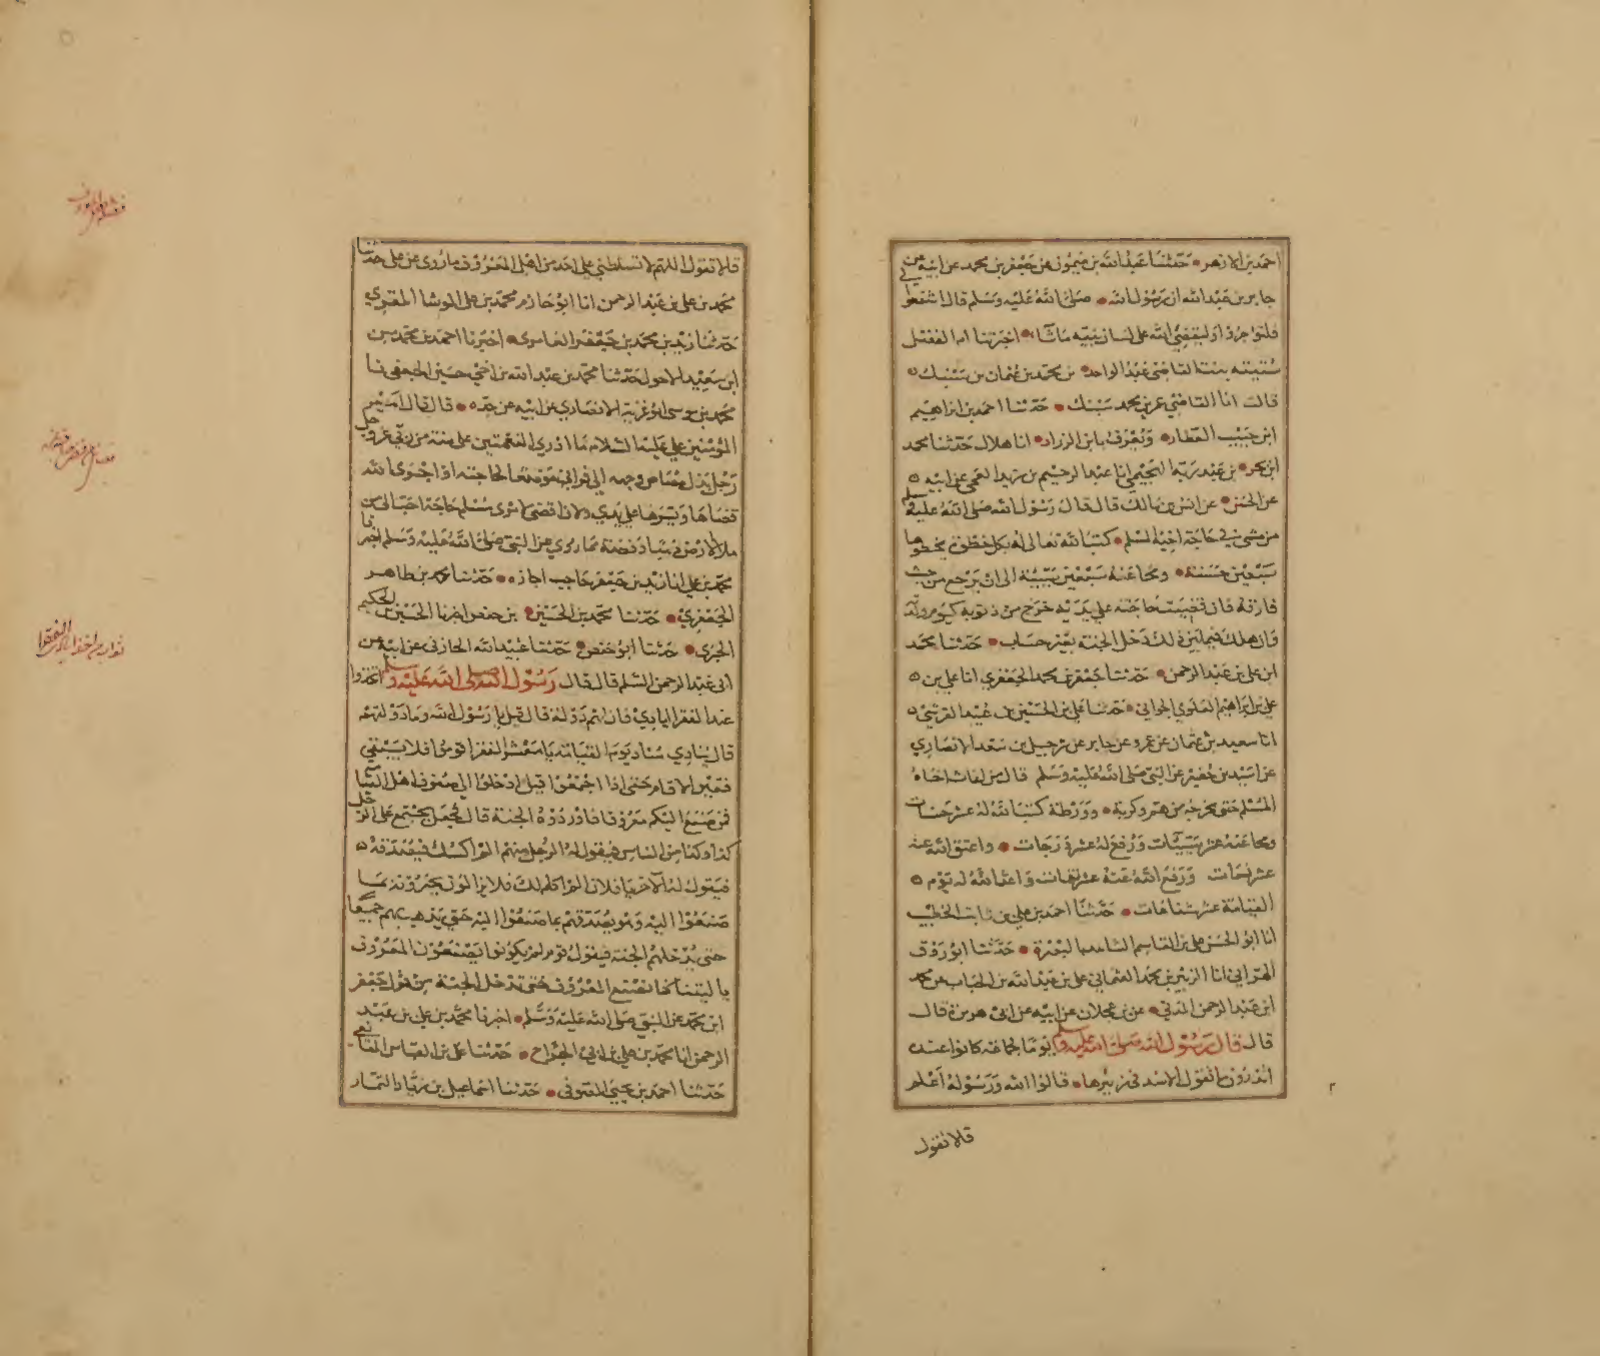 احمد بن الازهر حدثنا عبد الله بن ميمون عن جعفر بن محمد عن ابيه عن
جابر بن عبد الله ان رسول الله صلى الله عليه وسلم قال اشفعوا
فلتوجروا وليقضي الله على لسان نبيه ماشاء اخبرتنا ام الفضل
بنت القاضي عبد الواحد بن محمد بن عثمان بن سبنك
قالت انا القاضي عمر بن محمد سبنك حدثنا احمد بن ابراهيم
ابن حبيب العطار ويعرف بابن الزراد انا هلال حدثنا محمد
ابن بكر بن عبد ربه انا عبد الرحيم بن زيد العمي عن ابيه
عن الحسن عن انس بن مالك قال قال رسول الله صلى الله عليه وسلم
من مشى في حاجة اخيه المسلم كتب الله تعالى له بكل خطوة يخطوها
سبعين حسنة ومحا عنه سبعين سيئة الى ان يرجع من حيث
فارقه فان قضيت حاجته على يديه خرج من ذنوبه كيوم ولد
وان هلك فيما بين ذلك دخل الجنة بغير حساب حدثنا محمد
ابن علي بن عبد الرحمن حدثنا جعفر بن محمد الجعفري انا علي بن
علي بن ابراهيم العلوي حدثنا علي بن الحسين بن القرشي
انا سعيد بن عثمان عن عمرو عن جابر عن شرحبيل بن سعد الانصاري
عن اسيد بن حضير عن النبي صلى الله عليه وسلم قال من اغاث اخاه
المسلم حتى يخرجه من هم وكربة وورطة كتب الله له عشر حسنات
ومحا عنه عشر سيئات ورفع له عشر درجات واعتق الله عنه
عشر نسمات ورفع الله عنه عشر نقمات واعد الله له يوم
القيامة عشر شفاعات حدثنا احمد بن علي بن ثابت الخطيب
انا ابو الحسن علي بن القاسم الشاهد بالبصرة حدثنا ابو روق
الهزاني انا الزبير بن محمد العثماني علي بن عبد الله بن الحباب عن محمد
ابن عبد الرحمن المدني عن بن عجلان عن ابيه عن ابي هريرة قال
قال قال رسول الله صلى الله عليه وسلم يوما لجماعة كانوا عنده
اتدرون ما تقول الاسد في زئيرها قالوا الله ورسوله اعلم
قلا تقول
٢
قلا تقول اللهم لا تسلطني على احد من اهل المعروف ما روى عن علي حدثنا
محمد بن علي بن عبد الرحمن انا ابو حازم محمد بن علي الوشا المقري
حدثنا زيد بن محمد بن جعفر العامري اخبرنا احمد بن محمد بن
ابن سعيد الاحول حدثنا محمد بن عبد الله بن اخي حسين الجعفي نا
محمد بن موسى ابو غزية الانصاري عن ابيه عن جده قال قال امير
المؤمنين علي عليه السلام ما ادري اي النعمتين علي منة من ربي عز وجل
رجل بذل مصاص وجهه الي فرآني موضعا لحاجته او اجرى الله
قضاها ويسرها على يدي ولان اقضي لامرئ مسلم حاجة احب الي من
ملا الارض ذهبا وفضة مما روي عن النبي صلى الله عليه وسلم اخبرنا
محمد بن علي انا زيد بن جعفر حاجب اجازه حدثنا محمد بن طاهر
الجعفري حدثنا محمد بن الحسين بن حفص اخبرنا الحسين بن الحكيم
الجبري حدثنا ابو حفص حدثنا عبيد الله الحازني عن ابيه عن
ابي عبد الرحمن السلم قال قال رسول الله صلى الله عليه وسلم اتخذوا
عند الفقرا ايادي فان لهم دولة قال قيل يا رسول الله وما دولتهم
قال ينادي مناد يوم القيامة يا معشر الفقرا قوموا فلا يبقى
فقير الا قام حتى اذا اجتمعوا قيل ادخلوا الى صفوف اهل النار
فمن صنع اليكم معروفا فاوردوه الجنة قال فجعل يجتمع على الرجل
كذا وكذا من الناس فيقول له الرجل منهم الم اكسك فيصدقه
فيقول له الآخر يا فلان الم اكلم لك فلا يزالون يخبرونه بما
صنعوا اليه وهو يصدقهم بما صنعوا اليه حتى يذهب بهم جميعا
حتى يدخلهم الجنة فيقول قوم لم يكونوا يصنعون المعروف
يا ليتنا كنا نصنع المعروف حتى ندخل الجنة من قول جعفر
ابن محمد عن النبي صلى الله عليه وسلم اخبرنا محمد بن علي بن عبد
الرحمن انا محمد بن علي بن ابي الجراح حدثنا علي بن العباس المقانعي
حدثنا احمد بن يحيى الصوفي حدثنا اسماعيل بن زياد التمار